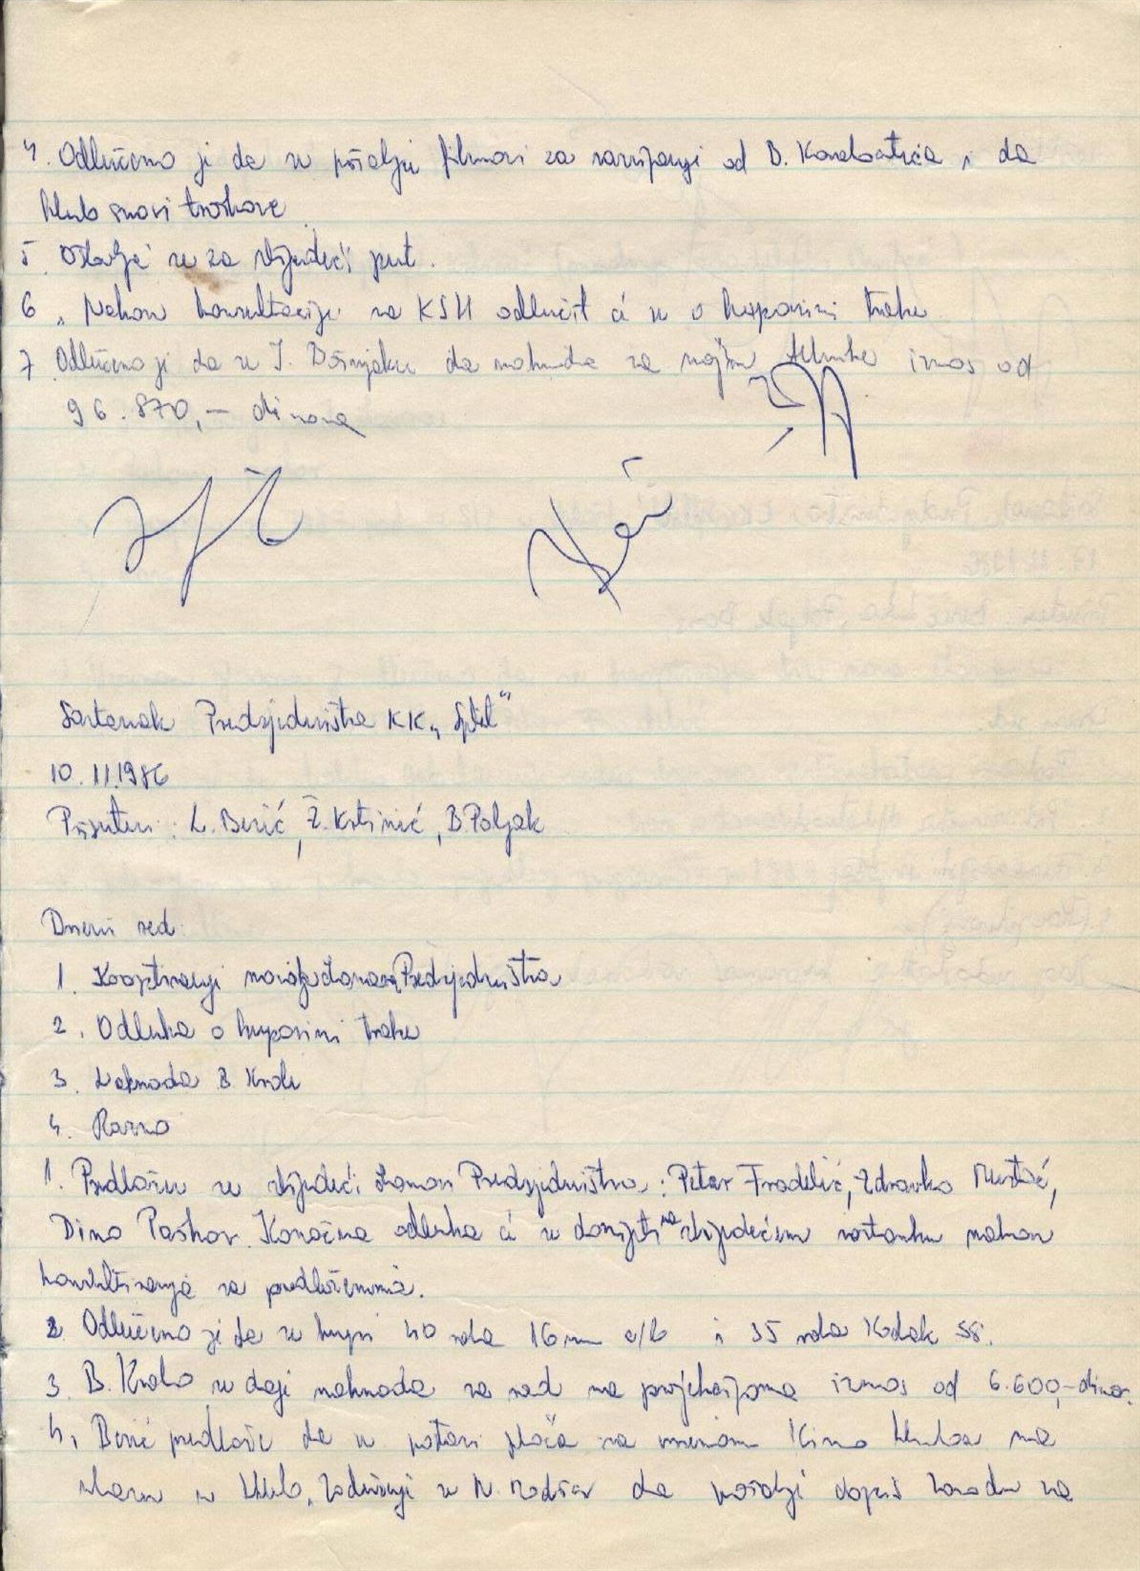 4. Odlučeno je da se pošalju filmovi za razvijanje od B. Karabatića i da
klub snosi troškove
5. Ostavlja se za slijedeći put.
6. Nakon konsultacije sa KSH odlučit će se o kupovini trake
7 Odlučeno je da se J. Bošnjaku da naknada za iznos od
96.870,- dinara
Sastanak Predsjedništva KK „Split"
10.11.1986
Prisutni: L. Berić, Ž. Krstinić, B. Poljak
Dnevni red:
1. Kooptiranje novih članova Predsjedništva
2. Odluka o kupovini trake
3. Naknada B. Kralu
4. Razno
1. Predlažu se slijedeći članovi Predsjedništva: Petar Fradelić, Zdravko Mustać,
Dino Paškov. Konačna odluka će se donijeti na slijedećem sastanku nakon
konsultiranja sa predloženima.
2 Odlučeno je da se kupi 40 rola 16 mm c/b i 35 rola Kodak S8.
3. B. Kralu se daje naknada za rad na projekcijama iznos od 6.600,- dinar.
4. Berić predlaže da se postavi ploča sa imenom Kino kluba na
u klub. Zadužuje se da pošalje dopis za